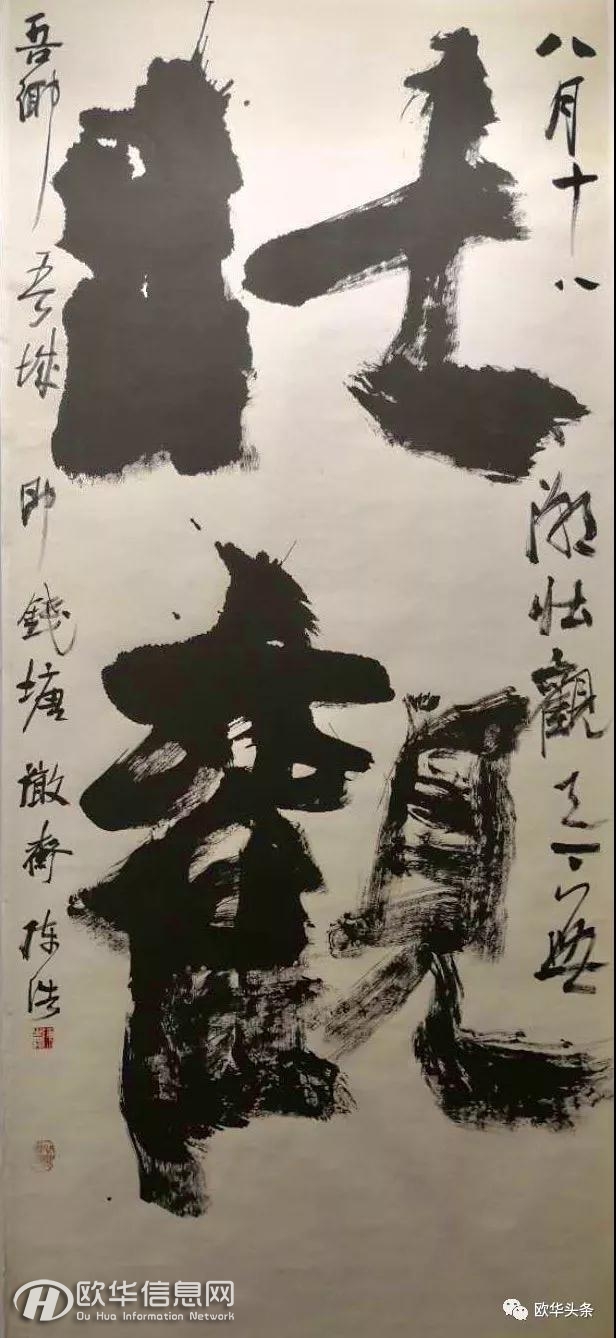 八月十八潮壯觀天下無
壯觀
吾鄉吾城即錢塘澂齋陈浩
欧华信息网
Ou Hua Information Network
欧华头条